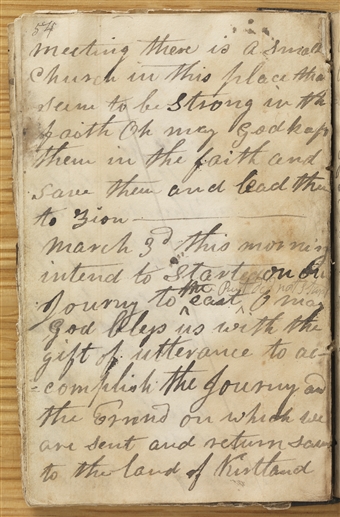 54
meeting there is a small
Church in this place tha
seeme to be Strong in th
faith Oh may God kep
them in the faith and
save them and lead the
to Zion
March 3d this morning
intend to Start on ou
But did not Start
Journy to the east O may
God bless us with the
gift of utterance to ac-
-complish the Journy and
the Errend on which we
are sent and return safe
to the land of Kirtland